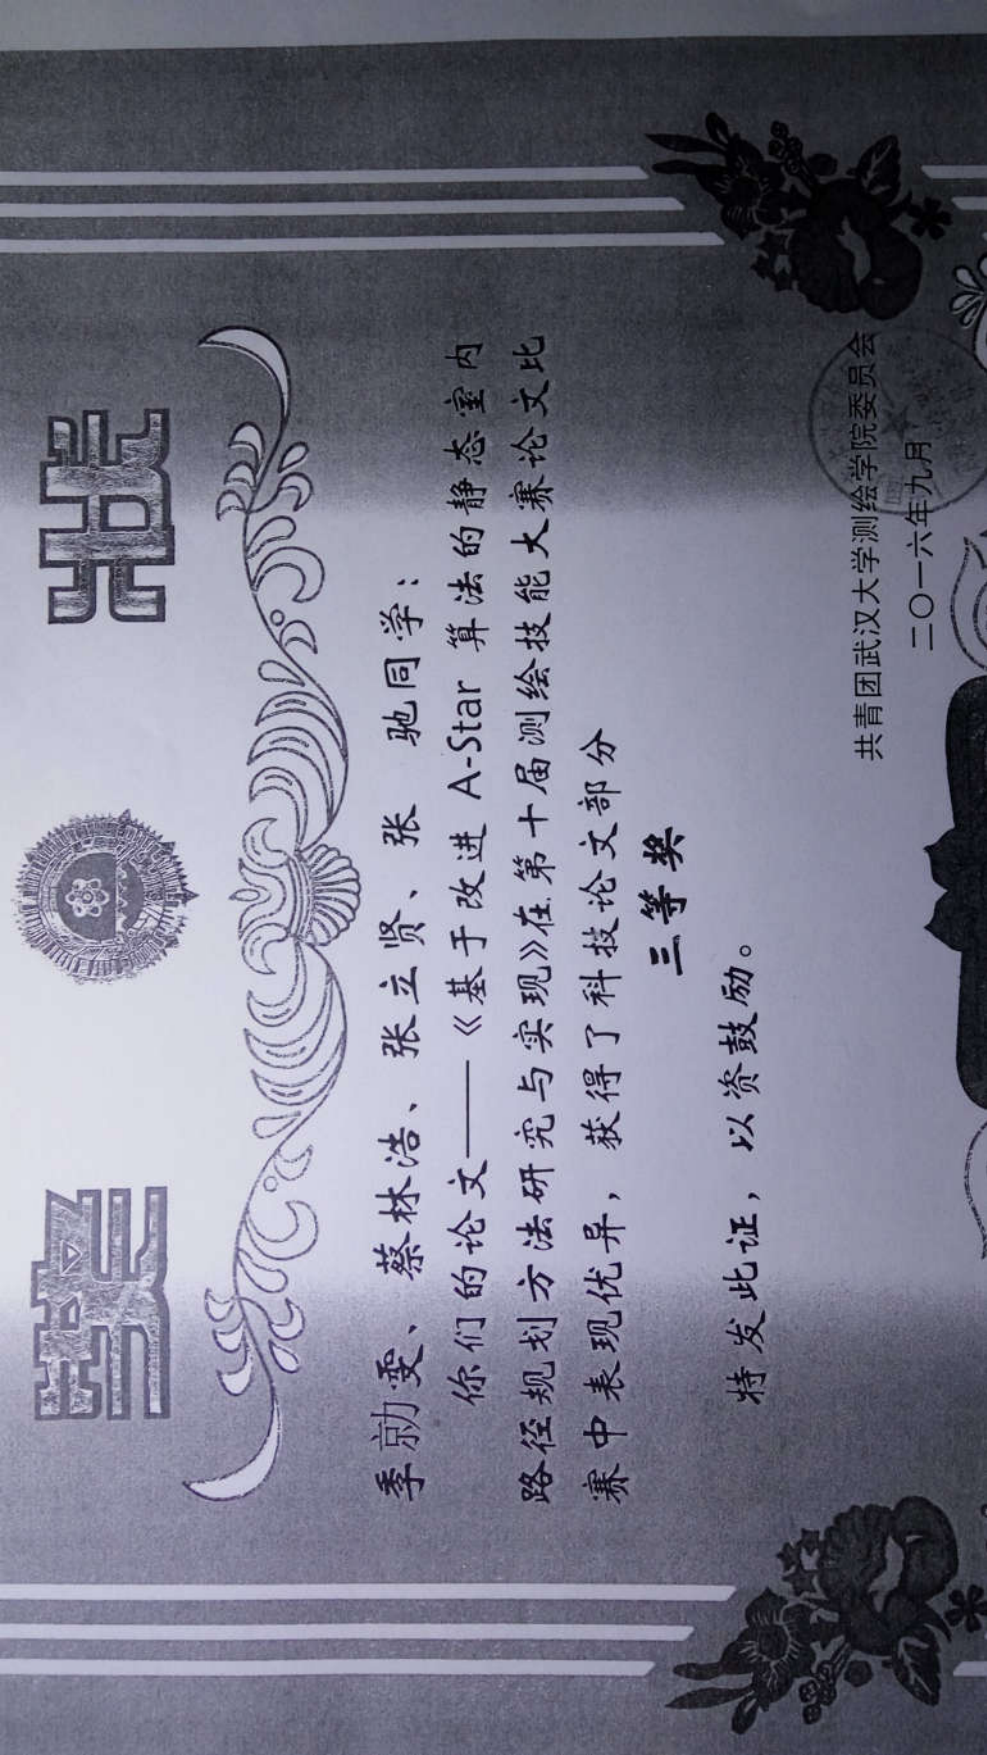 奖 状
季勍雯、蔡林浩、张立贤、张 驰同学：
你们的论文——《基于改进 A-Star 算法的静态室内
路径规划方法研究与实现》在第十届测绘技能大赛论文比
赛中表现优异，获得了科技论文部分
三等奖
特发此证，以资鼓励。
共青团武汉大学测绘学院委员会
二〇一六年九月